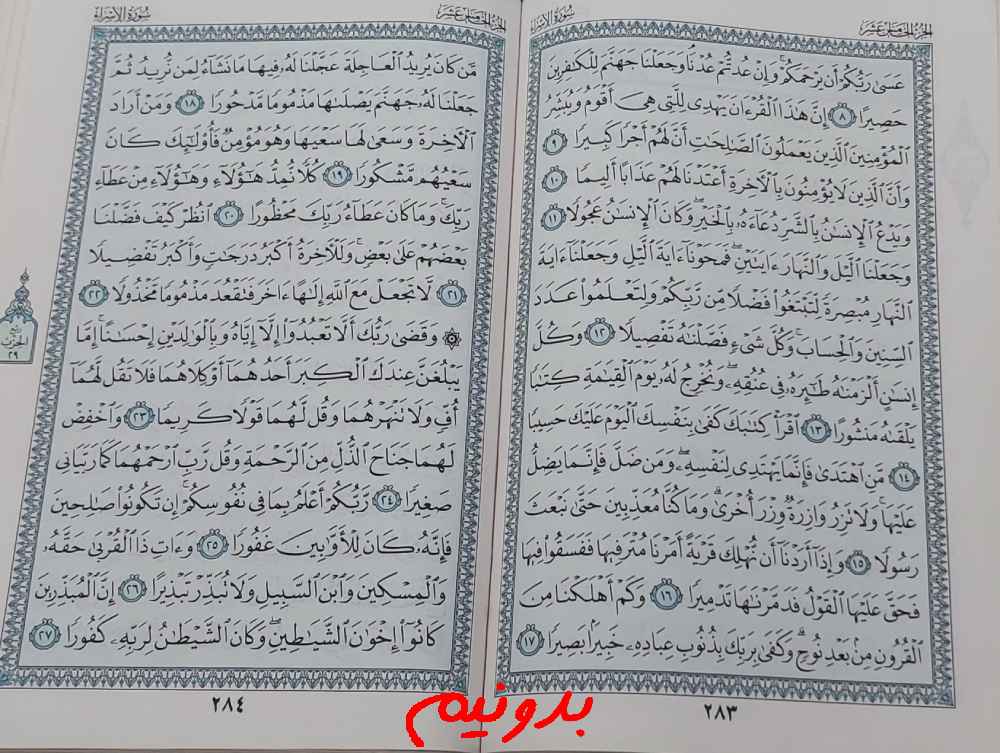 الجزء الخامس عشر
سورة الإسراء
عَسَىٰ رَبُّكُمْ أَن يَرْحَمَكُمْ ۚ وَإِنْ عُدتُّمْ عُدْنَا ۘ وَجَعَلْنَا جَهَنَّمَ لِلْكَافِرِينَ
حَصِيرًا ٨ إِنَّ هَٰذَا الْقُرْءَانَ يَهْدِي لِلَّتِي هِيَ أَقْوَمُ وَيُبَشِّرُ
الْمُؤْمِنِينَ الَّذِينَ يَعْمَلُونَ الصَّالِحَاتِ أَنَّ لَهُمْ أَجْرًا كَبِيرًا ٩
وَأَنَّ الَّذِينَ لَا يُؤْمِنُونَ بِالْآخِرَةِ أَعْتَدْنَا لَهُمْ عَذَابًا أَلِيمًا ١٠
وَيَدْعُ الْإِنسَانُ بِالشَّرِّ دُعَاءَهُ بِالْخَيْرِ ۖ وَكَانَ الْإِنسَانُ عَجُولًا ١١
وَجَعَلْنَا اللَّيْلَ وَالنَّهَارَ ءَايَتَيْنِ ۖ فَمَحَوْنَا ءَايَةَ اللَّيْلِ وَجَعَلْنَا ءَايَةَ
النَّهَارِ مُبْصِرَةً لِّتَبْتَغُوا فَضْلًا مِّن رَّبِّكُمْ وَلِتَعْلَمُوا عَدَدَ
السِّنِينَ وَالْحِسَابَ ۚ وَكُلَّ شَيْءٍ فَصَّلْنَاهُ تَفْصِيلًا ١٢ وَكُلَّ
إِنسَانٍ أَلْزَمْنَاهُ طَائِرَهُ فِي عُنُقِهِ ۖ وَنُخْرِجُ لَهُ يَوْمَ الْقِيَامَةِ كِتَابًا
يَلْقَاهُ مَنشُورًا ١٣ اقْرَأْ كِتَابَكَ كَفَىٰ بِنَفْسِكَ الْيَوْمَ عَلَيْكَ حَسِيبًا
١٤ مَّنِ اهْتَدَىٰ فَإِنَّمَا يَهْتَدِي لِنَفْسِهِ ۖ وَمَن ضَلَّ فَإِنَّمَا يَضِلُّ
عَلَيْهَا ۚ وَلَا تَزِرُ وَازِرَةٌ وِزْرَ أُخْرَىٰ ۗ وَمَا كُنَّا مُعَذِّبِينَ حَتَّىٰ نَبْعَثَ
رَسُولًا ١٥ وَإِذَا أَرَدْنَا أَن نُّهْلِكَ قَرْيَةً أَمَرْنَا مُتْرَفِيهَا فَفَسَقُوا فِيهَا
فَحَقَّ عَلَيْهَا الْقَوْلُ فَدَمَّرْنَاهَا تَدْمِيرًا ١٦ وَكَمْ أَهْلَكْنَا مِنَ
الْقُرُونِ مِنْ بَعْدِ نُوحٍ ۗ وَكَفَىٰ بِرَبِّكَ بِذُنُوبِ عِبَادِهِ خَبِيرًا بَصِيرًا ١٧
٢٨٣
الجزء الخامس عشر
سورة الإسراء
مَّن كَانَ يُرِيدُ الْعَاجِلَةَ عَجَّلْنَا لَهُ فِيهَا مَا نَشَاءُ لِمَن نُّرِيدُ ثُمَّ
جَعَلْنَا لَهُ جَهَنَّمَ يَصْلَاهَا مَذْمُومًا مَّدْحُورًا ١٨ وَمَنْ أَرَادَ
الْآخِرَةَ وَسَعَىٰ لَهَا سَعْيَهَا وَهُوَ مُؤْمِنٌ فَأُولَٰئِكَ كَانَ
سَعْيُهُم مَّشْكُورًا ١٩ كُلًّا نُّمِدُّ هَٰؤُلَاءِ وَهَٰؤُلَاءِ مِنْ عَطَاءِ
رَبِّكَ ۚ وَمَا كَانَ عَطَاءُ رَبِّكَ مَحْظُورًا ٢٠ انظُرْ كَيْفَ فَضَّلْنَا
بَعْضَهُمْ عَلَىٰ بَعْضٍ ۚ وَلَلْآخِرَةُ أَكْبَرُ دَرَجَاتٍ وَأَكْبَرُ تَفْضِيلًا
٢١ لَّا تَجْعَلْ مَعَ اللَّهِ إِلَٰهًا ءَاخَرَ فَتَقْعُدَ مَذْمُومًا مَّخْذُولًا ٢٢
۞ وَقَضَىٰ رَبُّكَ أَلَّا تَعْبُدُوا إِلَّا إِيَّاهُ وَبِالْوَالِدَيْنِ إِحْسَانًا ۚ إِمَّا
يَبْلُغَنَّ عِندَكَ الْكِبَرَ أَحَدُهُمَا أَوْ كِلَاهُمَا فَلَا تَقُل لَّهُمَا
أُفٍّ وَلَا تَنْهَرْهُمَا وَقُل لَّهُمَا قَوْلًا كَرِيمًا ٢٣ وَاخْفِضْ
لَهُمَا جَنَاحَ الذُّلِّ مِنَ الرَّحْمَةِ وَقُل رَّبِّ ارْحَمْهُمَا كَمَا رَبَّيَانِي
صَغِيرًا ٢٤ رَّبُّكُمْ أَعْلَمُ بِمَا فِي نُفُوسِكُمْ ۚ إِن تَكُونُوا صَالِحِينَ
فَإِنَّهُ كَانَ لِلْأَوَّابِينَ غَفُورًا ٢٥ وَءَاتِ ذَا الْقُرْبَىٰ حَقَّهُ
وَالْمِسْكِينَ وَابْنَ السَّبِيلِ وَلَا تُبَذِّرْ تَبْذِيرًا ٢٦ إِنَّ الْمُبَذِّرِينَ
كَانُوا إِخْوَانَ الشَّيَاطِينِ ۖ وَكَانَ الشَّيْطَانُ لِرَبِّهِ كَفُورًا ٢٧
٢٨٤
ربع
الحزب
٢٩
بدونیم